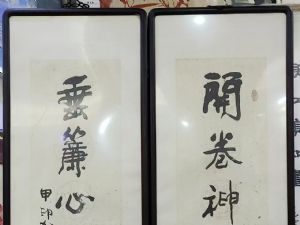 開卷神
垂簾心
甲